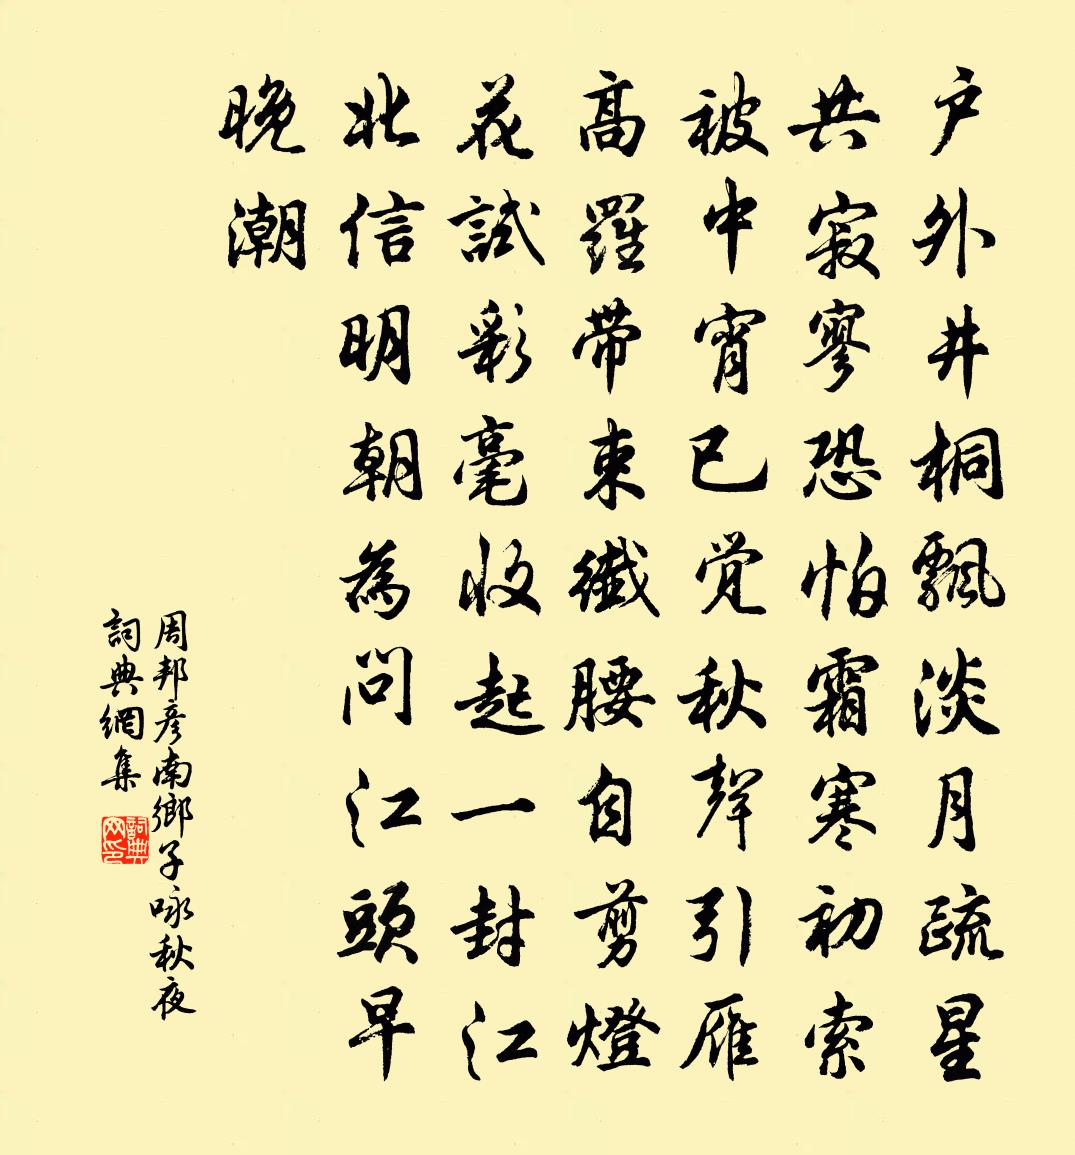 户外井桐飘淡月疏星
共寂寥恐怕霜寒初索
被中宵已觉秋聲引雁
高羅帶束纖腰自剪燈
花試彩毫收起一封江
北信明朝為問江頭早
晚潮
周邦彦南鄉子咏秋夜
詞典網集
詞典网印